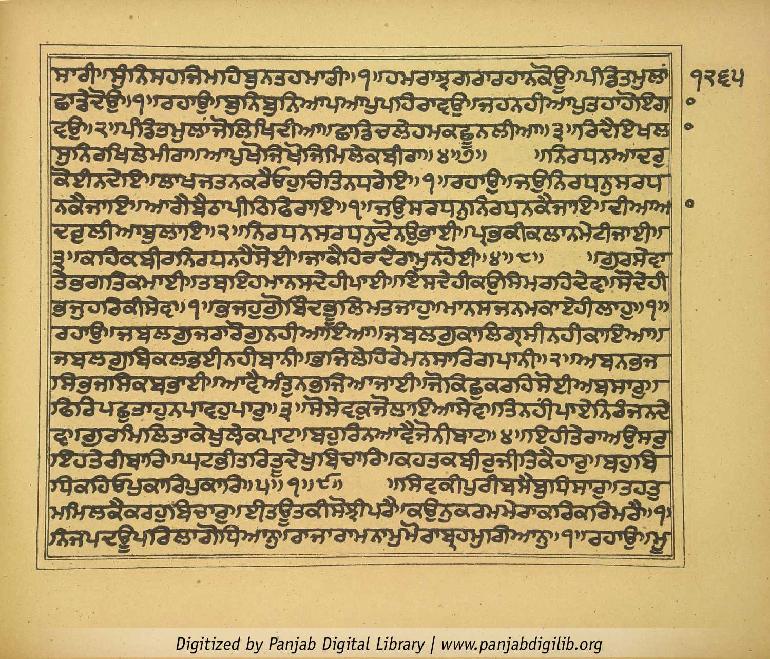 ਸਾਰੀ॥ਸੁੰਨਿਸਹਜਿਮਹਿਬੁਨਤਹਮਾਰੀ॥੧॥ਹਮਰਾਝਗਰਾਰਹਾਨਕੋਊ॥ਪੰਡਿਤਮੁਲਾਂ ੧੨੬੫
ਛਾਡੇਦੋਊ॥੧॥ਰਹਾਉ॥ਬੁਨਿਬੁਨਿਆਪਆਪੁਪਹਿਰਾਵਉ॥ਜਹਨਹੀਆਪੁਤਹਾਹੋਇਗਾ
ਵਉ॥੨॥ਪੰਡਿਤਮੁਲਾਂਜੋਲਿਖਿਦੀਆ॥ਛਾਡਿਚਲੇਹਮਕਛੂਨਲੀਆ॥੩॥ਰਿਦੈਇਖਲ
ਸੁਨਿਰਖਿਲੇਮੀਰਾ॥ਆਪੁਖੋਜਿਖੋਜਿਮਿਲੇਕਬੀਰਾ॥੪॥੭॥ ਨਿਰਧਨਆਦਰੁ
ਕੋਈਨਦੇਇ॥ਲਾਖਜਤਨਕਰੈਓਹੁਚਿਤਿਨਧਰੇਇ॥੧॥ਰਹਾਉ॥ਜਉਨਿਰਧਨੁਸਰਧ
ਨਕੈਜਾਇ॥ਆਗੈਬੈਠਾਪੀਠਿਫਿਰਾਇ॥੧॥ਜਉਸਰਧਨੁਨਿਰਧਨਕੈਜਾਇ॥ਦੀਆਆ
ਦਰੁਲੀਆਬੁਲਾਇ॥੨॥ਨਿਰਧਨਸਰਧਨੁਦੋਨਉਭਾਈ॥ਪ੍ਰਭਕੀਕਲਾਨਮੇਟੀਜਾਈ॥
੩॥ਕਹਿਕਬੀਰਨਿਰਧਨਹੈਸੋਈ॥ਜਾਕੈਹਿਰਦੈਰਾਮੁਨਹੋਈ॥੪॥੮॥ ਗੁਰਸੇਵਾ
ਤੇਭਗਤਿਕਮਾਈ॥ਤਬਇਹਮਾਨਸਦੇਹੀਪਾਈ॥ਇਸਦੇਹੀਕਉਸਿਮਰਹਿਦੇਵ॥ਸੋਦੇਹੀ
ਭਜੁਹਰਿਕੀਸੇਵ॥੧॥ਭਜਹੁਗੋਬਿੰਦਭੂਲਿਮਤਜਾਹੁ॥ਮਾਨਸਜਨਮਕਾਏਹੀਲਾਹੁ॥੧॥
ਰਹਾਉ॥ਜਬਲਗੁਜਰਾਰੋਗੁਨਹੀਆਇਆ॥ਜਬਲਗੁਕਾਲਿਗ੍ਰਸੀਨਹੀਕਾਇਆ॥
ਜਬਲਗੁਬਿਕਲਭਈਨਹੀਬਾਨੀ॥ਭਜਿਲੇਹਿਰੇਮਨਸਾਰਿਗਪਾਨੀ॥੨॥ਅਬਨਭਜ
ਸਿਭਜਸਿਕਬਭਾਈ॥ਆਵੈਅੰਤੁਨਭਜਿਆਜਾਈ॥ਜੋਕਿਛੁਕਰਹਿਸੋਈਅਬਸਾਰੁ॥
ਫਿਰਿਪਛੁਤਾਹੁਨਪਾਵਹੁਪਾਰੁ॥੩॥ਸੋਸੇਵਕੁਜੋਲਾਇਆਸੇਵ॥ਤਿਨਹੀਪਾਏਨਿਰੰਜਨਦੇ
ਵ॥ਗੁਰਮਿਲਿਤਾਕੇਖੁਲੇਕਪਾਟ॥ਬਹੁਰਿਨਆਵੈਜੋਨੀਬਾਟ॥੪॥ਇਹੀਤੇਰਾਅਉਸਰੁ
ਇਹਤੇਰੀਬਾਰ॥ਘਟਭੀਤਰਿਤੂਦੇਖੁਬਿਚਾਰਿ॥ਕਹਤਕਬੀਰੁਜੀਤਿਕੈਹਾਰਿ॥ਬਹੁਬਿ
ਧਿਕਹਿਓਪੁਕਾਰਿਪੁਕਾਰਿ॥੫॥੧॥੯॥ ਸਿਵਕੀਪੁਰੀਬਸੈਬੁਧਿਸਾਰੁ॥ਤਹਤੁ
ਮਮਿਲਿਕੈਕਰਹੁਬਿਚਾਰੁ॥ਈਤਊਤਕੀਸੋਝੀਪਰੈ॥ਕਉਨੁਕਰਮਮੇਰਾਕਰਿਕਰਿਮਰੈ॥੧॥
ਨਿਜਪਦਊਪਰਿਲਾਗੋਧਿਆਨੁ॥ਰਾਜਾਰਾਮਨਾਮੁਮੋਰਾਬ੍ਰਹਮਗਿਆਨੁ॥੧॥ਰਹਾਉ॥ਮੂ
Digitized by Panjab Digital Library | www.panjabdigilib.org